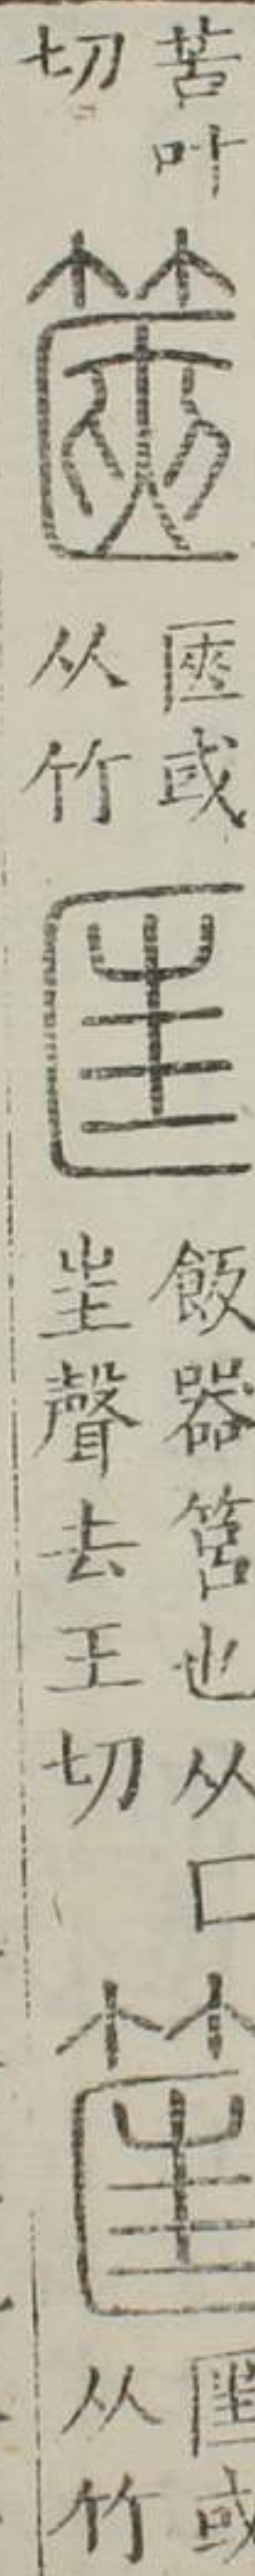 苦叶
切
篋
匧或
从竹
𠥓
飯器筥也从匚
㞷聲去王切
筐
𠥓或
从竹